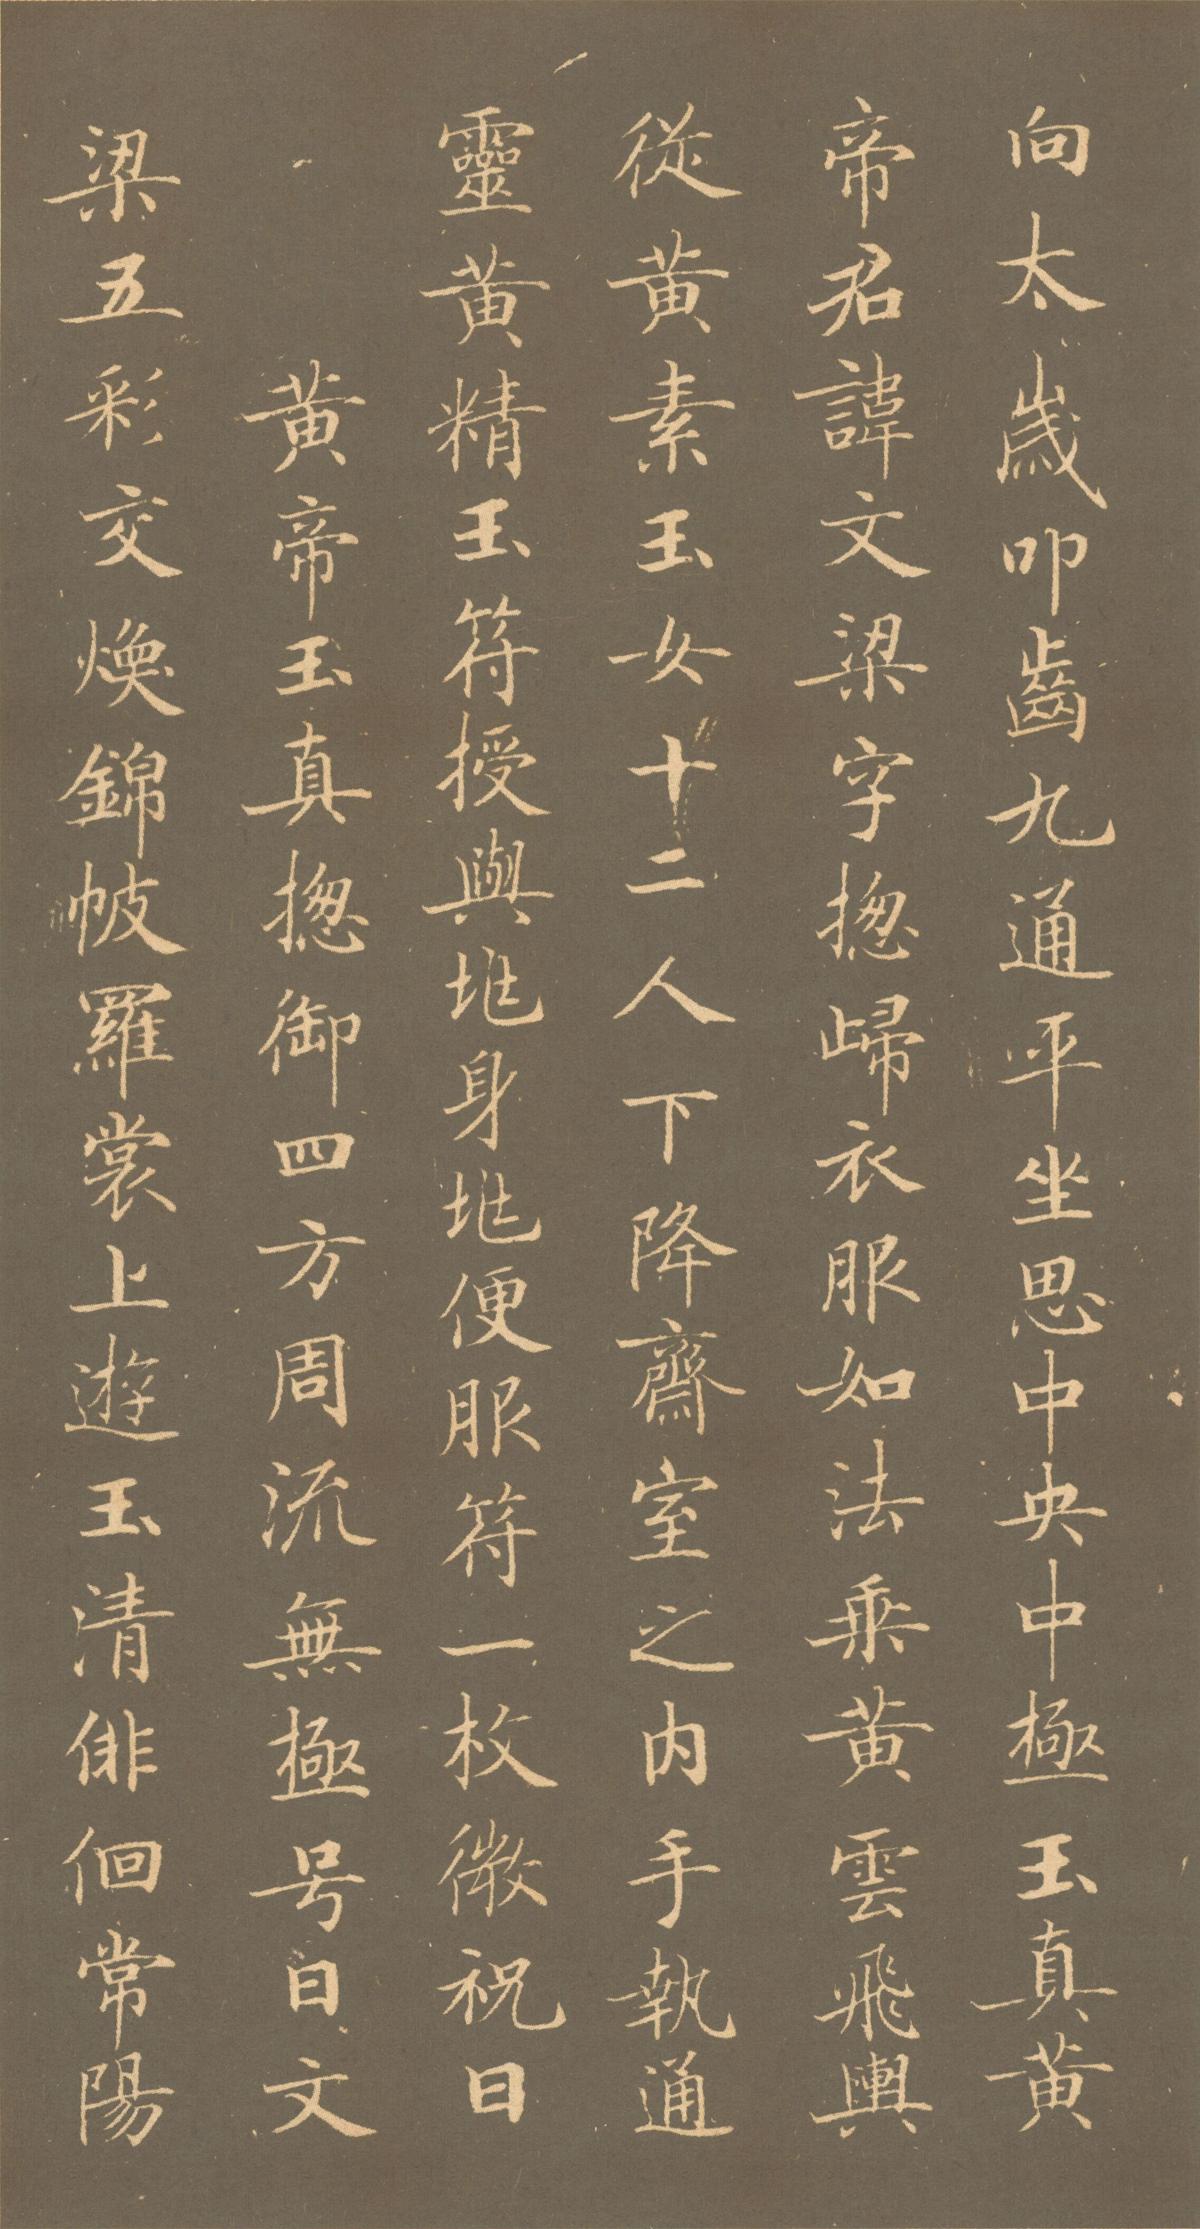 向太歲叩齒九通平坐思中央中極玉真黃
帝君諱文梁字揔歸衣服如法乘黃雲飛輿
從黃素玉女十二人下降齋室之內手執通
靈黃精玉符授與兆身兆便服符一枚微祝曰
黃帝玉真揔御四方周流無極号曰文
梁五彩交煥錦帔羅裳上遊玉清俳佪常陽